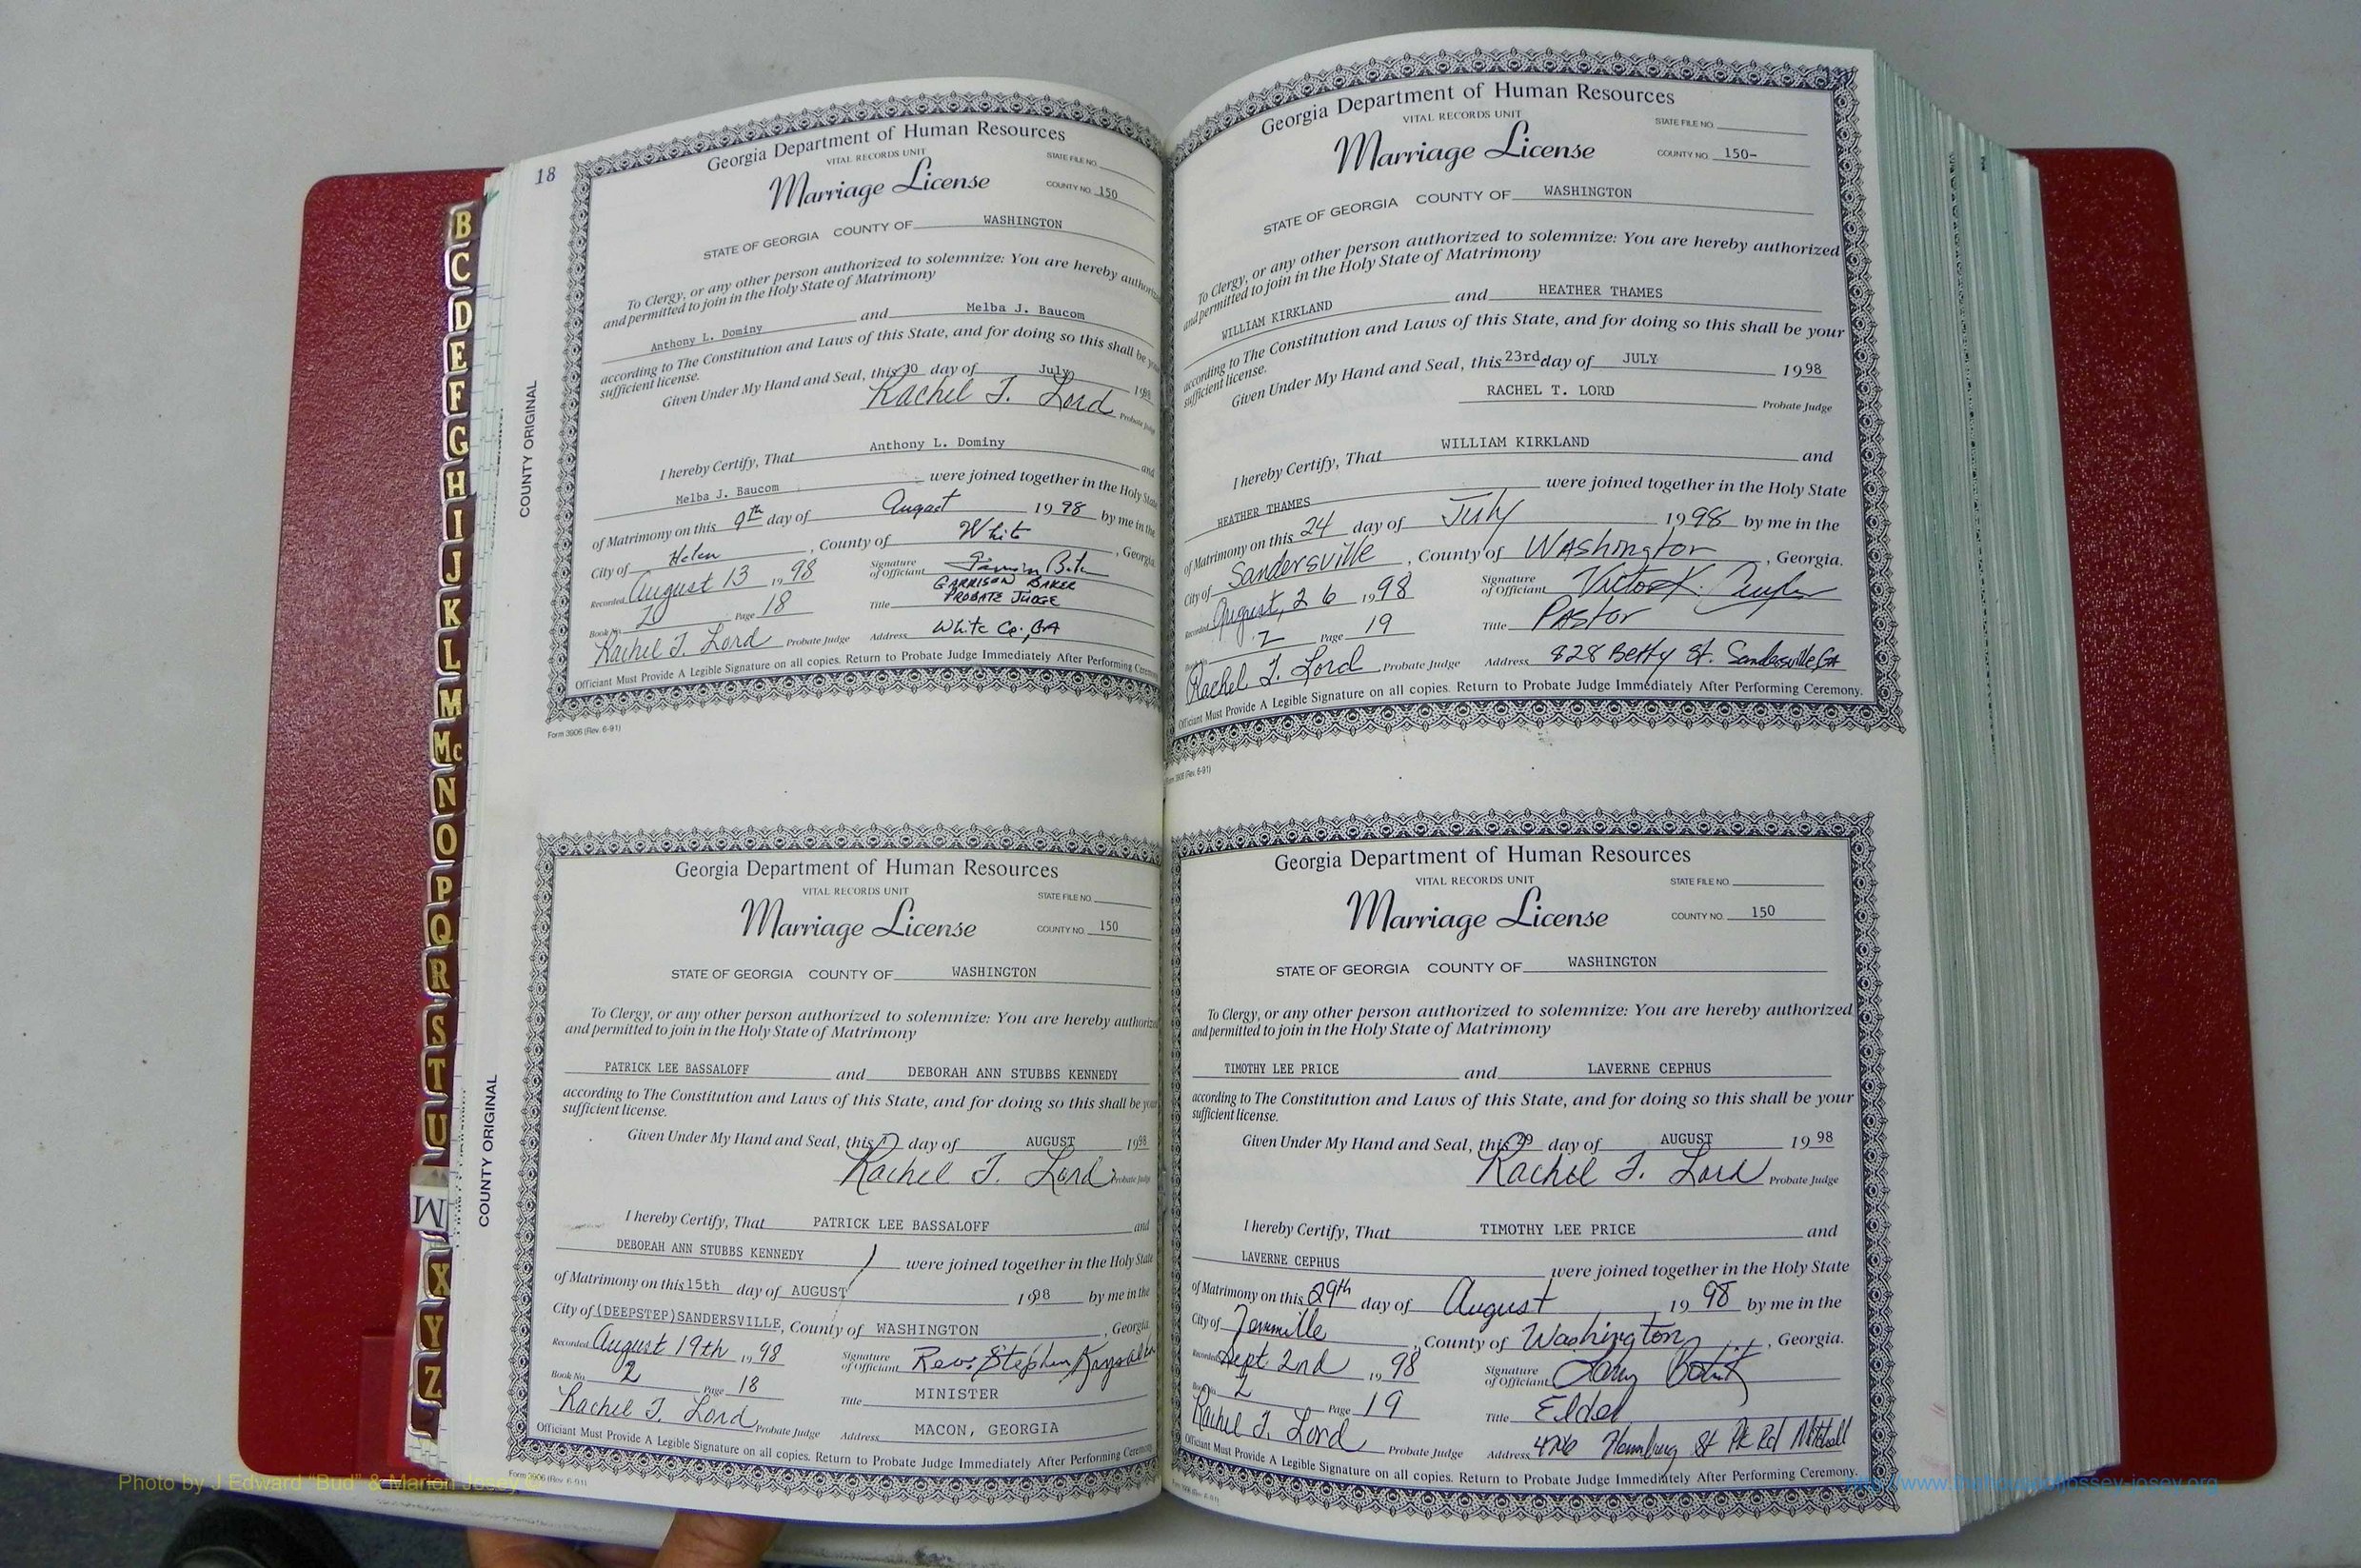 18
COUNTY ORIGINAL
Georgia Department of Human Resources
VITAL RECORDS UNIT
STATE FILE NO.
Marriage License
COUNTY NO. 150
STATE OF GEORGIA COUNTY OF WASHINGTON
To Clergy, or any other person authorized to solemnize: You are hereby
and permitted to join in the Holy State of Matrimony
Anthony L. Dominy and Melba J. Baucom
according to The Constitution and Laws of this State, and for doing so this shall be
sufficient license.
Given Under My Hand and Seal, this 30 day of July 1998
Rachel T. Lord Probate
I hereby Certify, That Anthony L. Dominy and
Melba J. Baucom were joined together in the Holy State
of Matrimony on this 9th day of August 1998 by me in the
City of Helen, County of White, Georgia.
Recorded August 13, 1998 Signature of Officiant
GARRISON BAKER
Book No. 2 Page 18 Title PROBATE JUDGE
Rachel T. Lord Probate Judge Address White Co. GA
Officiant Must Provide A Legible Signature on all copies. Return to Probate Judge Immediately After Performing
Form 3906 (Rev. 6-91)
COUNTY ORIGINAL
Georgia Department of Human Resources
VITAL RECORDS UNIT
STATE FILE NO.
Marriage License
COUNTY NO. 150
STATE OF GEORGIA COUNTY OF WASHINGTON
To Clergy, or any other person authorized to solemnize: You are hereby
and permitted to join in the Holy State of Matrimony
PATRICK LEE BASSALOFF and DEBORAH ANN STUBBS KENNEDY
according to The Constitution and Laws of this State, and for doing so this shall be your
sufficient license.
Given Under My Hand and Seal, this day of AUGUST 1998
Rachel T. Lord Probate Judge
I hereby Certify, That PATRICK LEE BASSALOFF and
DEBORAH ANN STUBBS KENNEDY were joined together in the Holy State
of Matrimony on this 15th day of AUGUST 1998 by me in the
City of (DEEPSTEP)SANDERSVILLE, County of WASHINGTON, Georgia.
Recorded August 19th, 1998 Signature of Officiant Rev. Stephen
Book No. 2 Page 18 Title MINISTER
Rachel T. Lord Probate Judge Address MACON, GEORGIA
Officiant Must Provide A Legible Signature on all copies. Return to Probate Judge Immediately After Performing
Form 3906 (Rev. 6-91)
Georgia Department of Human Resources
VITAL RECORDS UNIT
STATE FILE NO.
Marriage License
COUNTY NO. 150-
STATE OF GEORGIA COUNTY OF WASHINGTON
To Clergy, or any other person authorized to solemnize: You are hereby authorized
and permitted to join in the Holy State of Matrimony
WILLIAM KIRKLAND and HEATHER THAMES
according to The Constitution and Laws of this State, and for doing so this shall be your
sufficient license.
Given Under My Hand and Seal, this 23rd day of JULY 1998
RACHEL T. LORD Probate Judge
I hereby Certify, That WILLIAM KIRKLAND and
HEATHER THAMES were joined together in the Holy State
of Matrimony on this 24 day of July 1998 by me in the
City of Sandersville, County of Washington, Georgia.
Recorded August, 26, 1998 Signature of Officiant Victor K.
Book No. 2 Page 19 Title Pastor
Rachel T. Lord Probate Judge Address 828 Betty St. Sandersville, GA
Officiant Must Provide A Legible Signature on all copies. Return to Probate Judge Immediately After Performing Ceremony.
Form 3906 (Rev. 6-91)
Georgia Department of Human Resources
VITAL RECORDS UNIT
STATE FILE NO.
Marriage License
COUNTY NO. 150
STATE OF GEORGIA COUNTY OF WASHINGTON
To Clergy, or any other person authorized to solemnize: You are hereby authorized
and permitted to join in the Holy State of Matrimony
TIMOTHY LEE PRICE and LAVERNE CEPHUS
according to The Constitution and Laws of this State, and for doing so this shall be your
sufficient license.
Given Under My Hand and Seal, this 29 day of AUGUST 1998
Rachel T. Lord Probate Judge
I hereby Certify, That TIMOTHY LEE PRICE and
LAVERNE CEPHUS were joined together in the Holy State
of Matrimony on this 29th day of August 1998 by me in the
City of Tennille, County of Washington, Georgia.
Recorded Sept 2nd, 1998 Signature of Officiant
Book No. 2 Page 19 Title Elder
Rachel T. Lord Probate Judge Address St Pk Rd Mitchell
Officiant Must Provide A Legible Signature on all copies. Return to Probate Judge Immediately After Performing Ceremony.
B
C
D
E
F
G
H
I
J
K
L
M
Mc
N
O
P
Q
R
S
T
U
M
X
Y
Z
Photo by J Edward "Bud" & Marion Josey ©
http://www.thehouseofjossey-josey.org